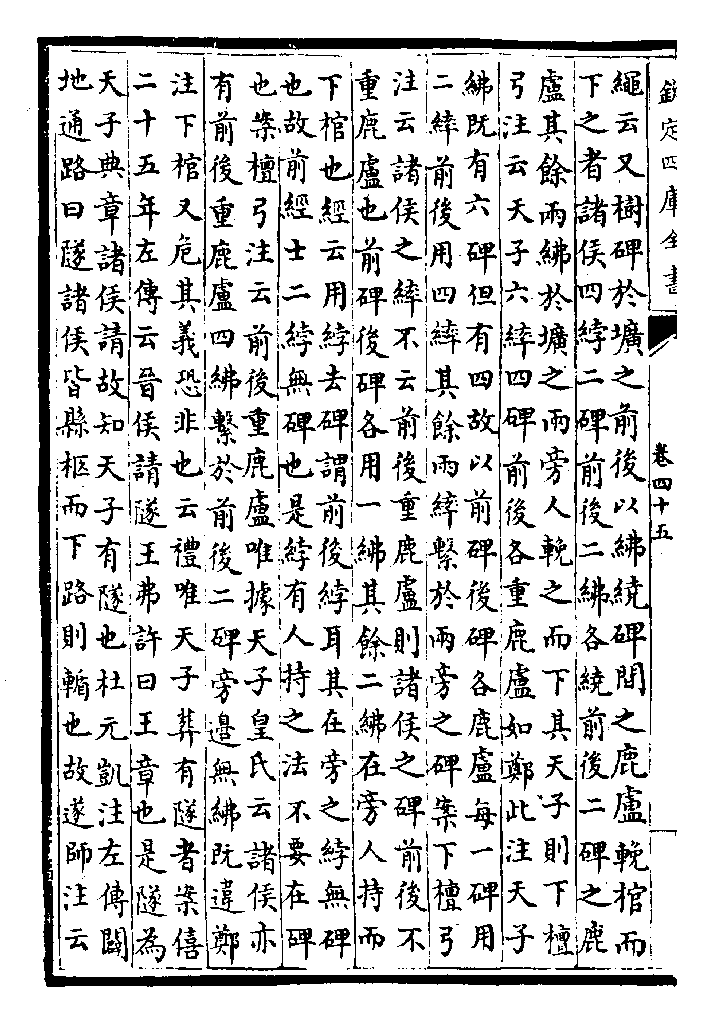 欽定四庫全書
卷四十五
繩云又樹碑於壙之前後以紼繞碑間之鹿盧輓棺而
下之者諸侯四綍二碑前後二紼各繞前後二碑之鹿
盧其餘兩紼於壙之兩旁人輓之而下其天子則下檀
弓注云天子六繂四碑前後各重鹿盧如鄭此注天子
紼既有六碑但有四故以前碑後碑各鹿盧每一碑用
二繂前後用四繂其餘兩繂繫於兩旁之碑案下檀弓
注云諸侯之繂不云前後重鹿盧則諸侯之碑前後不
重鹿盧也前碑後碑各用一紼其餘二紼在旁人持而
下棺也經云用綍去碑謂前後綍耳其在旁之綍無碑
也故前經士二綍無碑也是綍有人持之法不要在碑
也案檀弓注云前後重鹿盧唯據天子皇氏云諸侯亦
有前後重鹿盧四紼繫於前後二碑旁邉無紼既違鄭
注下棺又危其義恐非也云禮唯天子葬有隧者案僖
二十五年左傳云晉侯請隧王弗許曰王章也是隧為
天子典章諸侯請故知天子有隧也杜元凱注左傳闕
地通路曰隧諸侯皆縣柩而下路則輴也故遂師注云